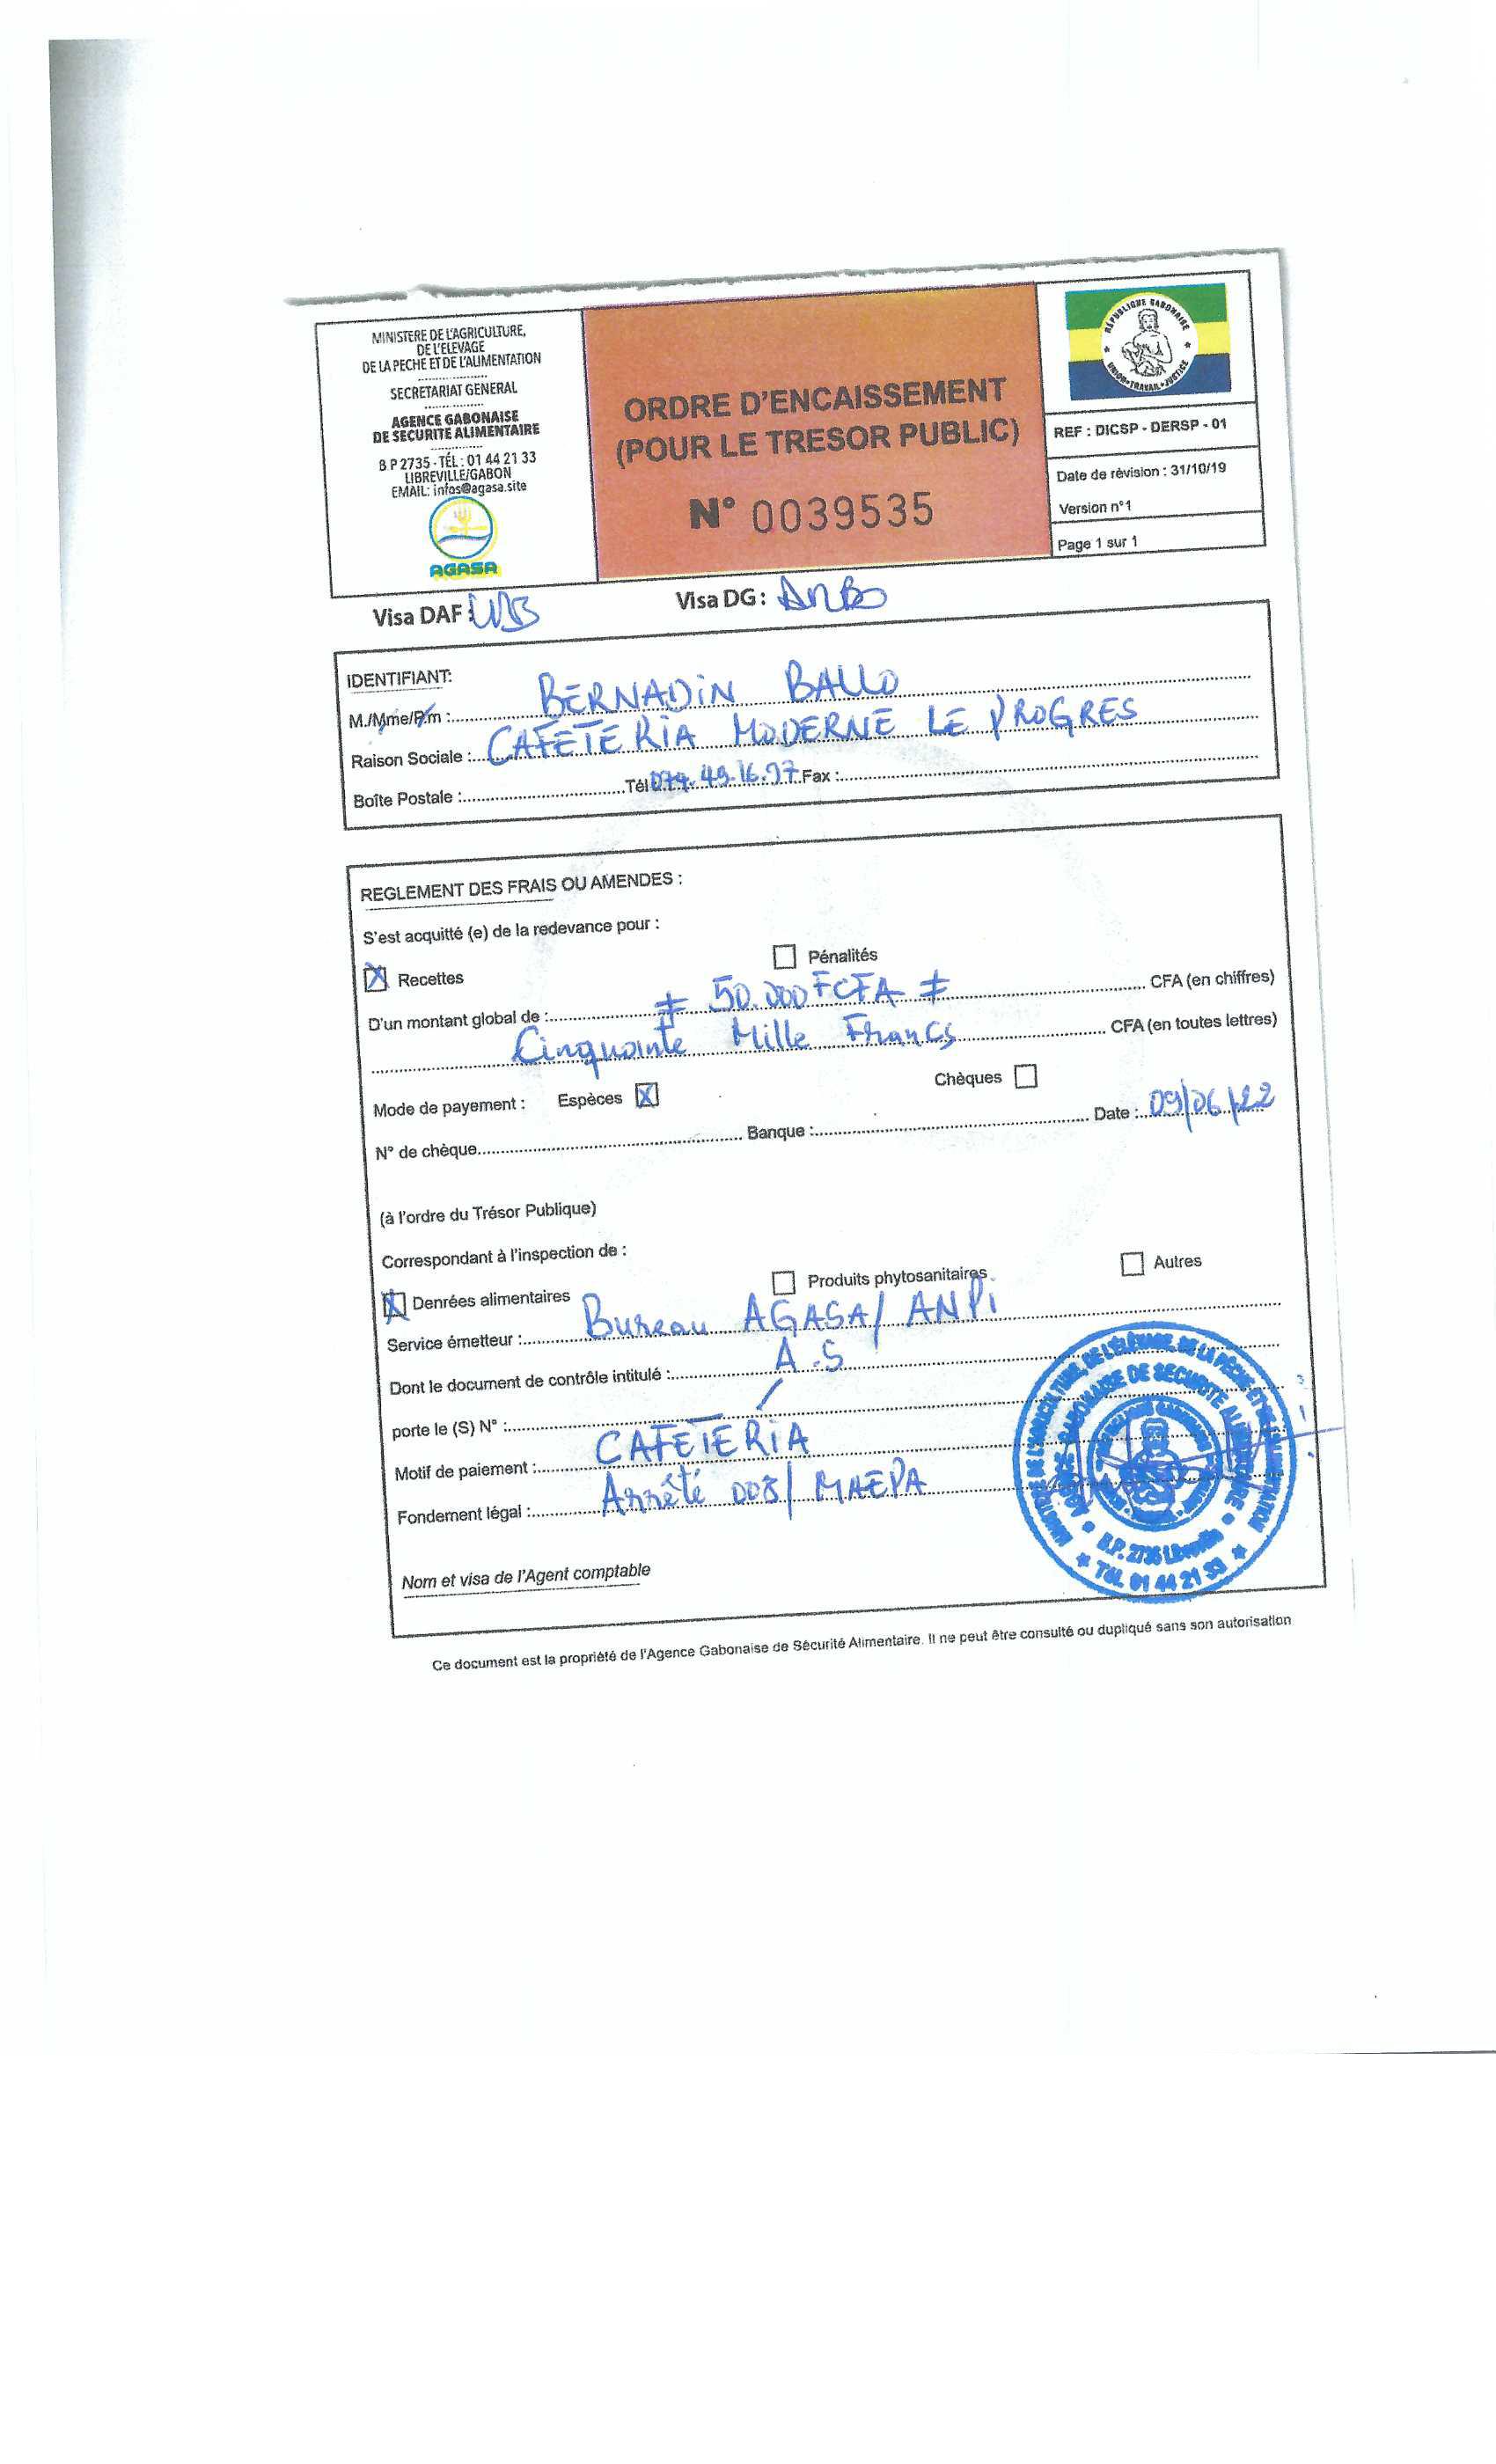 MINISTERE DE L'AGRICULTURE,
DE L'ELEVAGE
DE LA PECHE ET DE L'ALIMENTATION
SECRETARIAT GENERAL
AGENCE GABONAISE
DE SECURITE ALIMENTAIRE
B P 2735 - TÉL : 01 44 21 33
LIBREVILLE/GABON
EMAIL: infos@agasa.site
AGASA
ORDRE D'ENCAISSEMENT
(POUR LE TRESOR PUBLIC)
N° 0039535
RÉPUBLIQUE GABONAISE
UNION-TRAVAIL-JUSTICE
REF : DICSP - DERSP - 01
Date de révision : 31/10/19
Version n°1
Page 1 sur 1
Visa DAF :
Visa DG :
IDENTIFIANT:
M./Mme/Pm : BERNADIN BALLO
Raison Sociale : CAFETERIA MODERNE LE PROGRES
Boîte Postale : Tél 074.49.16.77 Fax :
REGLEMENT DES FRAIS OU AMENDES :
S'est acquitté (e) de la redevance pour :
X Recettes Pénalités
D'un montant global de : ≠ 50.000 FCFA ≠ CFA (en chiffres)
Cinquante Mille Francs CFA (en toutes lettres)
Mode de payement : Espèces X Chèques
N° de chèque Banque : Date : 09/06/22
(à l'ordre du Trésor Publique)
Correspondant à l'inspection de :
X Denrées alimentaires Produits phytosanitaires Autres
Service émetteur : Bureau AGASA/ANPI
Dont le document de contrôle intitulé : A.S
porte le (S) N° : /
Motif de paiement : CAFETERIA
Fondement légal : Arrêté 008/MAEPA
MINISTERE DE L'AGRICULTURE, DE L'ÉLEVAGE, DE LA PÊCHE ET DE L'ALIMENTATION
AGENCE GABONAISE DE SECURITE ALIMENTAIRE
B.P. 2735 Libreville
Tél. 01 44 21 33
Nom et visa de l'Agent comptable
Ce document est la propriété de l'Agence Gabonaise de Sécurité Alimentaire. Il ne peut être consulté ou dupliqué sans son autorisation